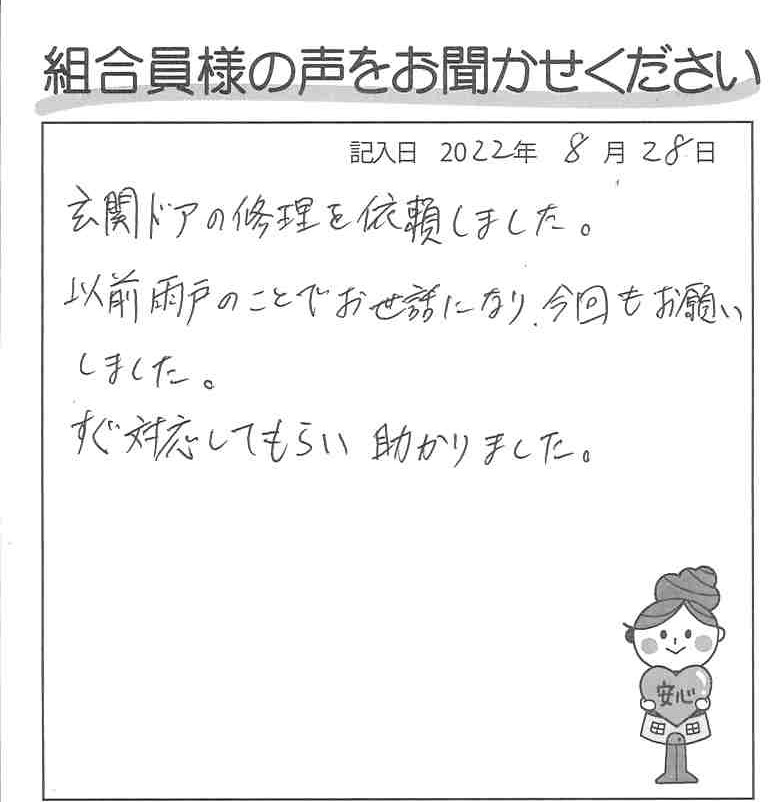 組合員様の声をお聞かせください
記入日 2022年 8月28日
玄関ドアの修理を依頼しました。
以前雨戸のことでお世話になり、今回もお願い
しました。
すぐ対応してもらい 助かりました。
安心